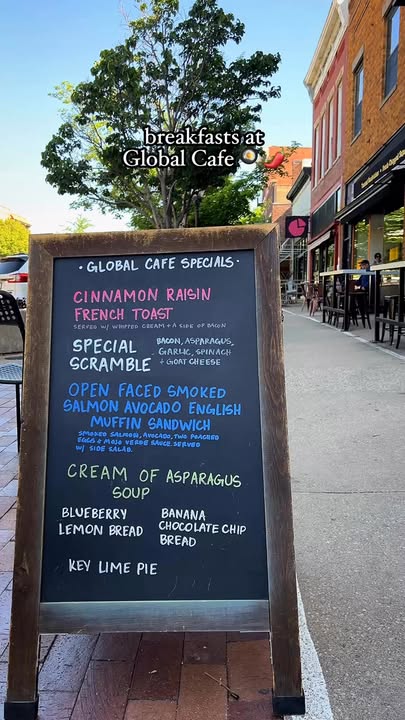 breakfasts at
Global Cafe 🍳🌶️
· GLOBAL CAFE SPECIALS ·
CINNAMON RAISIN
FRENCH TOAST
SERVED W/ WHIPPED CREAM + A SIDE OF BACON
SPECIAL
SCRAMBLE
BACON, ASPARAGUS,
GARLIC, SPINACH
+ GOAT CHEESE
OPEN FACED SMOKED
SALMON AVOCADO ENGLISH
MUFFIN SANDWICH
SMOKED SALMON, AVOCADO, TWO POACHED
EGGS & MOJO VERDE SAUCE. SERVED
W/ SIDE SALAD.
CREAM OF ASPARAGUS
SOUP
BLUEBERRY
LEMON BREAD
BANANA
CHOCOLATE CHIP
BREAD
KEY LIME PIE